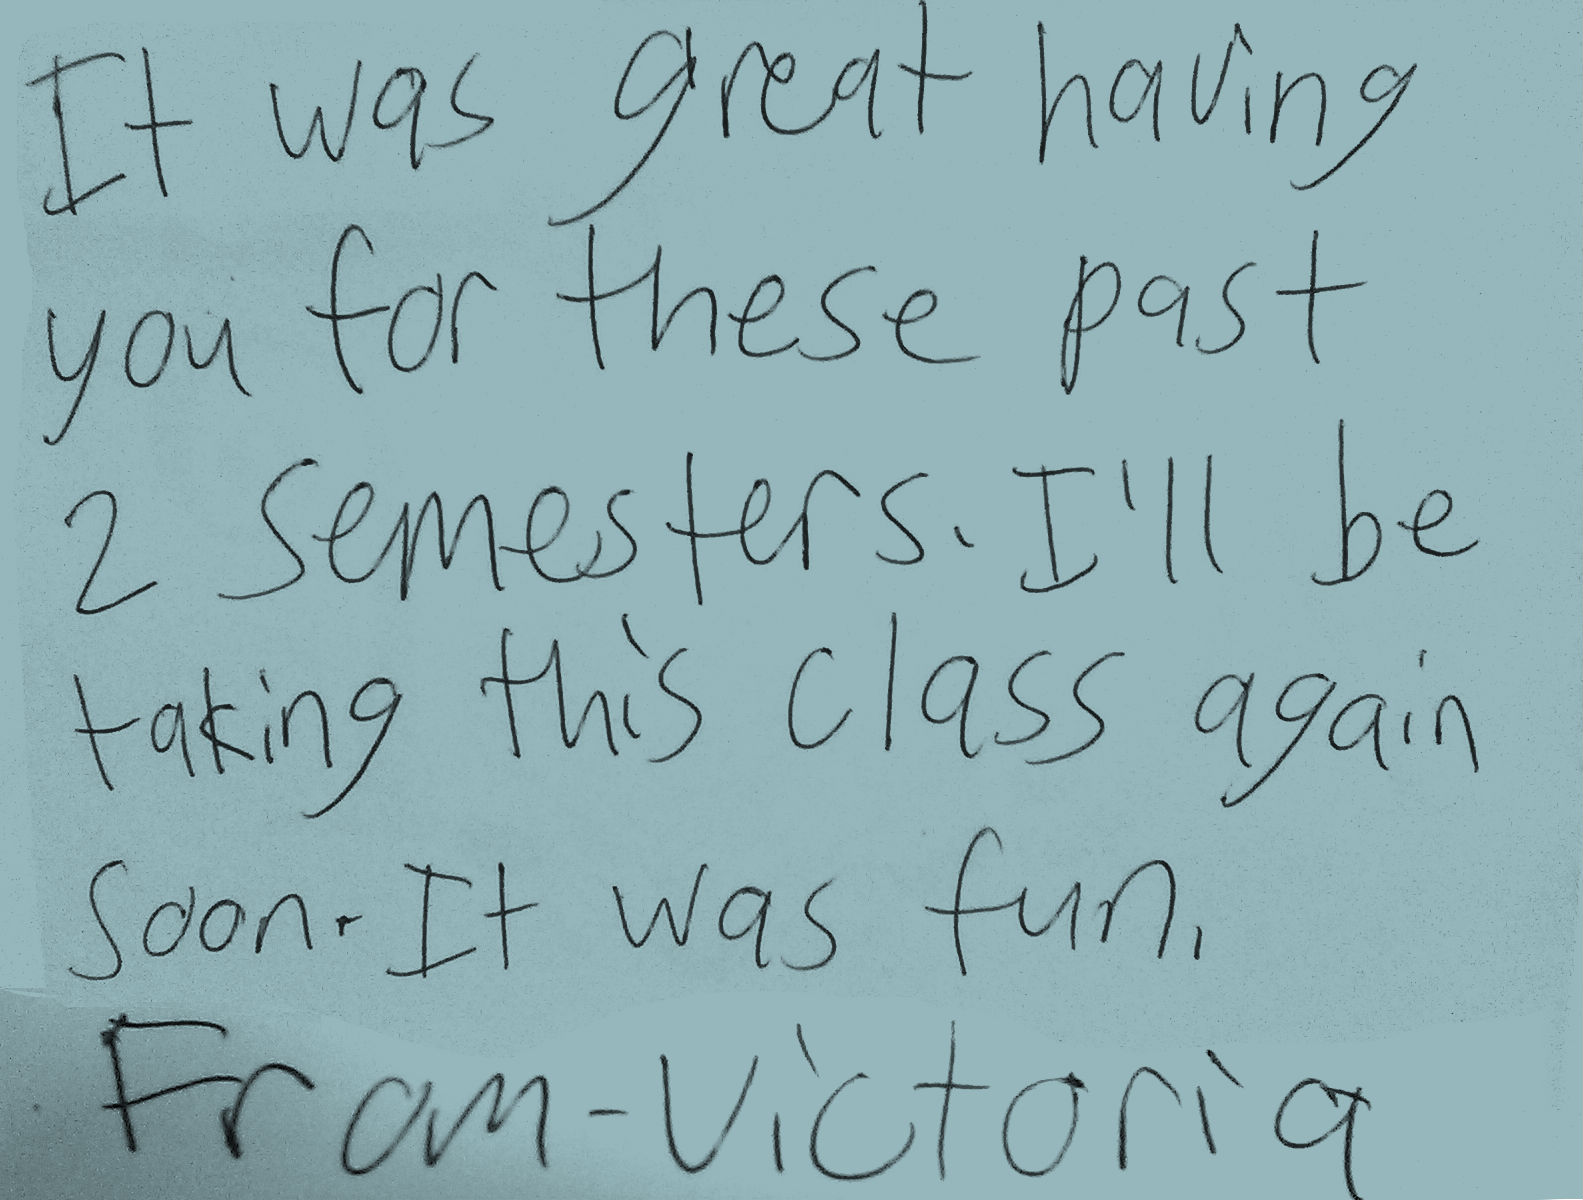 It was great having
you for these past
2 semesters. I'll be
taking this class again
soon. It was fun.
From-Victoria